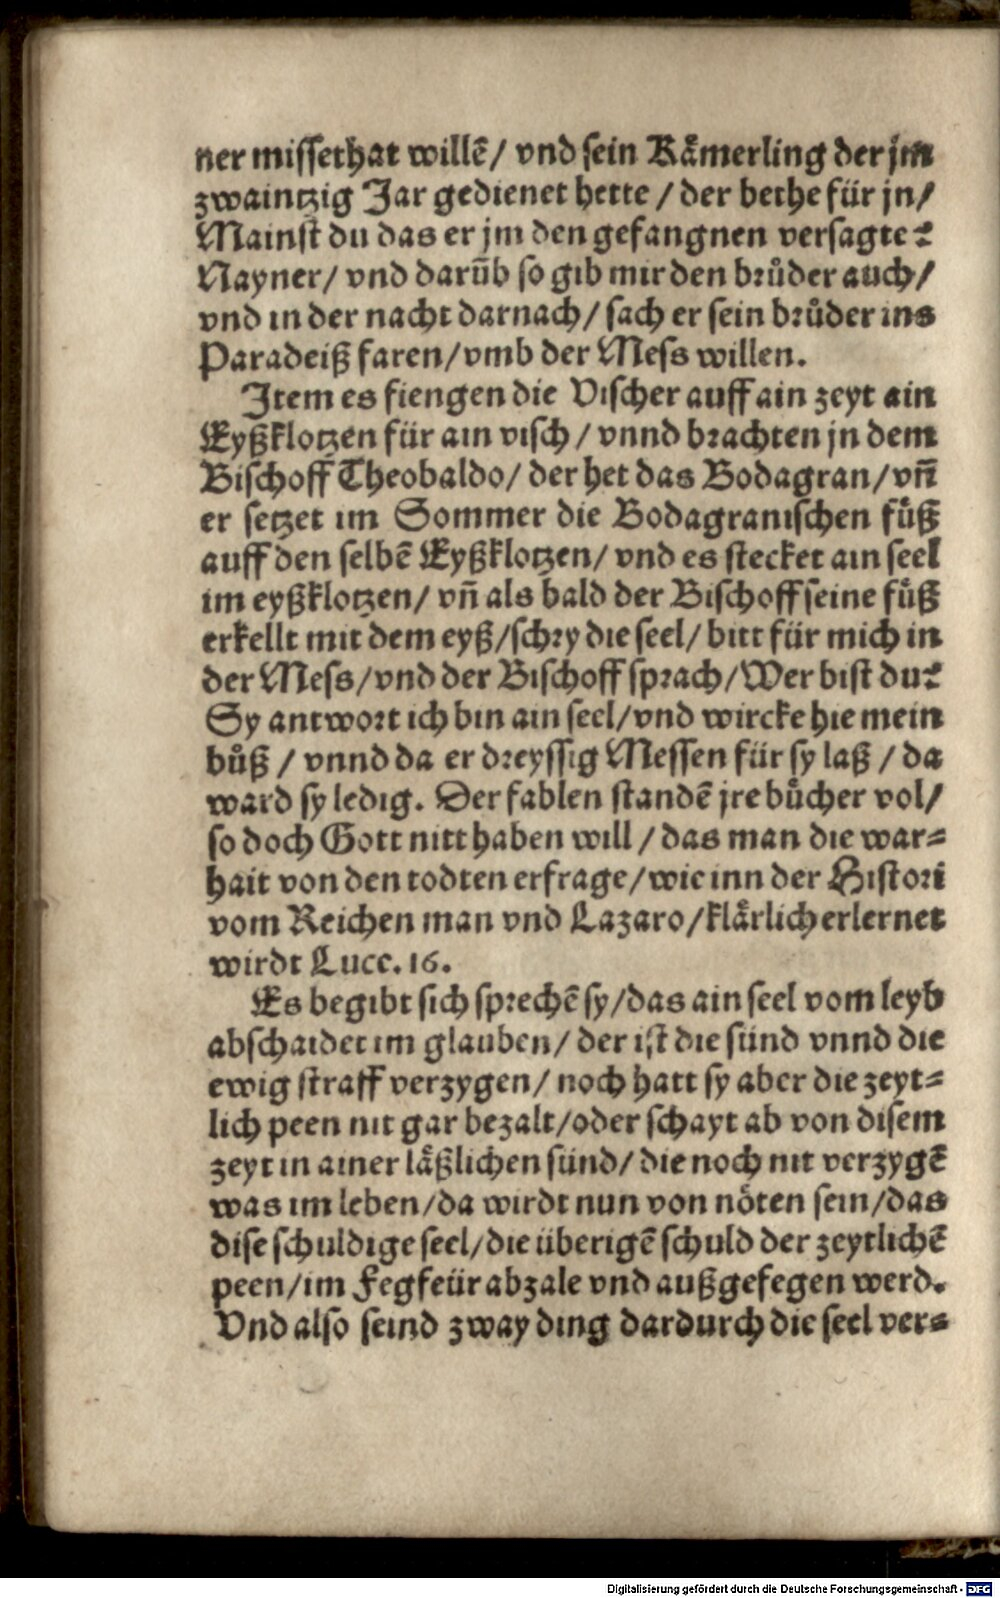 ner missethat willē / vnd sein Kaͤmerling der jm
zwaintzig Jar gedienet hette / der bethe für jn /
Mainst du das er jm den gefangnen versagte?
Nayner / vnd darūb so gib mir den bruͦder auch /
vnd in der nacht darnach / sach er sein bruͦder ins
Paradeiß faren / vmb der Mess willen.
Item es fiengen die Vischer auff ain zeyt ain
Eyßklotzen für ain visch / vnnd brachten jn dem
Bischoff Theobaldo / der het das Bodagran / vn̄
er setzet im Sommer die Bodagranischen fuͤß
auff den selbē Eyßklotzen / vnd es stecket ain seel
im eyßklotzen / vn̄ als bald der Bischoff seine fuͤß
erkellt mit dem eyß / schry die seel / bitt für mich in
der Mess / vnd der Bischoff sprach / Wer bist du?
Sy antwort ich bin ain seel / vnd wircke hie mein
buͦß / vnnd da er dreyssig Messen für sy laß / da
ward sy ledig. Der fablen standē jre buͤcher vol /
so doch Gott nitt haben will / das man die war⸗
hait von den todten erfrage / wie inn der Histori
vom Reichen man vnd Lazaro / klaͤrlich erlernet
wirdt Luce. 16.
Es begibt sich sprechē sy / das ain seel vom leyb
abschaidet im glauben / der ist die sünd vnnd die
ewig straff verzygen / noch hatt sy aber die zeyt⸗
lich peen nit gar bezalt / oder schayt ab von disem
zeyt in ainer laͤßlichen sünd / die noch nit verzygē
was im leben / da wirdt nun von noͤten sein / das
dise schuldige seel / die überigē schuld der zeytlichē
peen / im Fegfeür abzale vnd außgefegen werd.
Vnd also seind zway ding dardurch die seel ver⸗
Digitalisierung gefördert durch die Deutsche Forschungsgemeinschaft - DFG